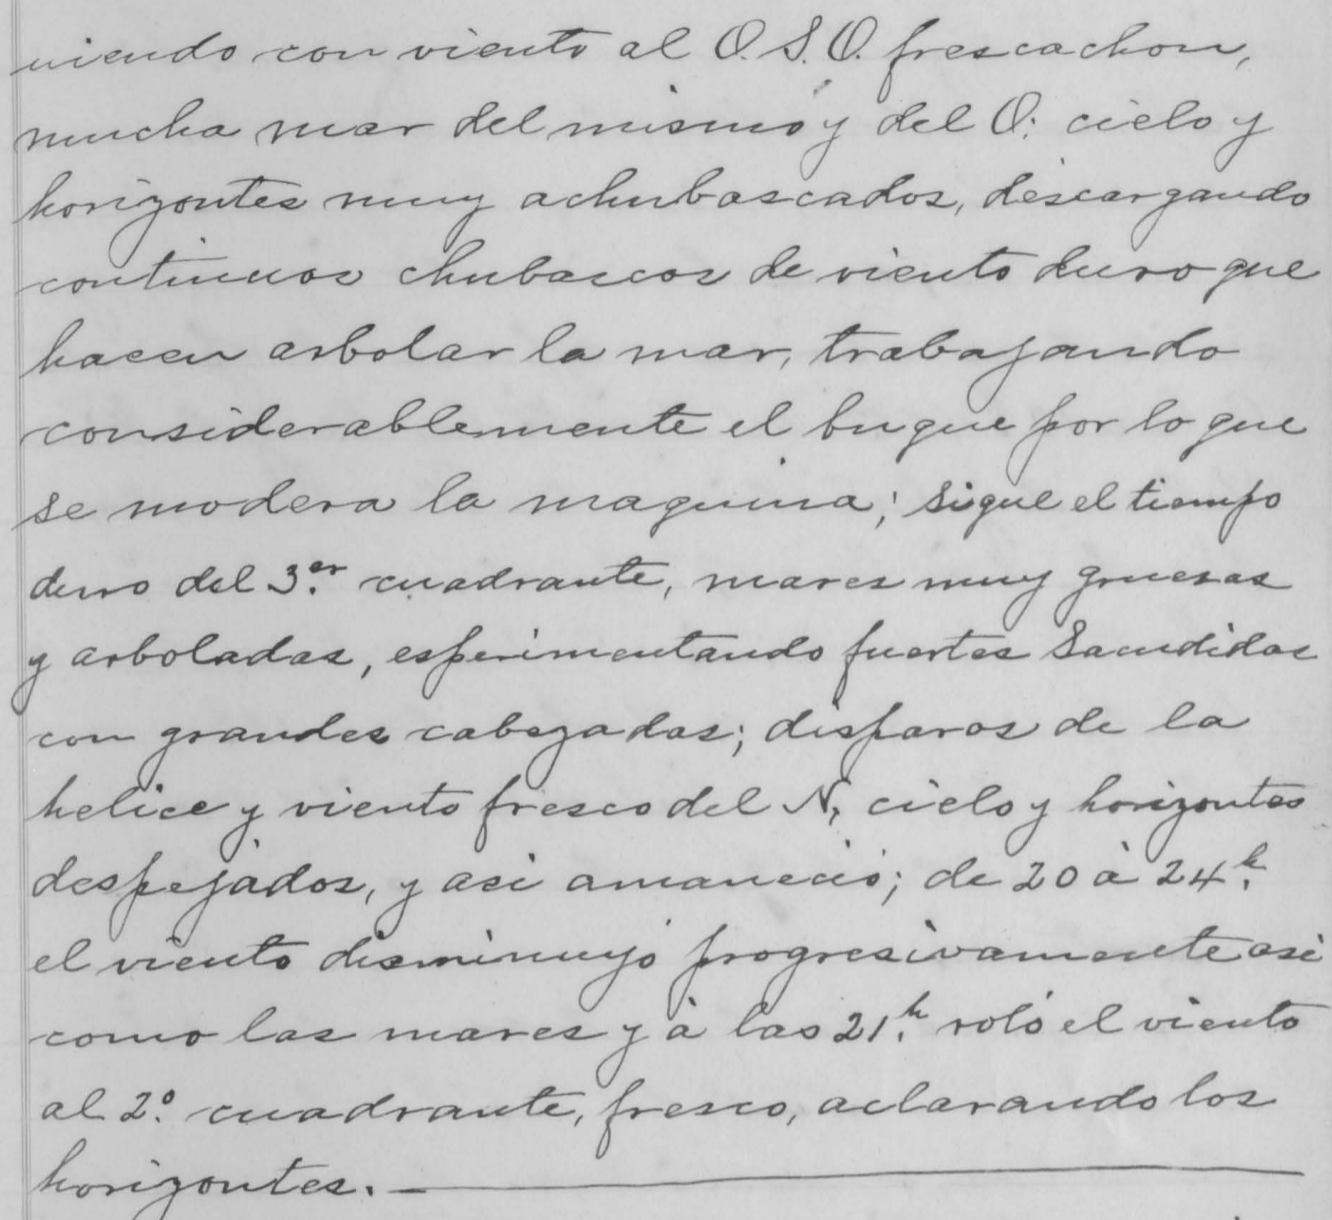 niendo con viento al O.S.O. frescachon,
mucha mar del mismo y del O; cielo y
horizontes muy achubascados, descargando
continuos chubascos de viento duro que
hacen arbolar la mar, trabajando
considerablemente el buque por lo que
se modera la maquina; sigue el tiempo
duro del 3.er cuadrante, mares muy gruesas
y arboladas, esperimentando fuertes sacudidas
con grandes cabezadas; disparos de la
helice y viento fresco del N, cielo y horizontes
despejados, y asi amaneció; de 20 à 24.h
el viento disminuyó progresivamente asi
como las mares y à las 21.h roló el viento
al 2.o cuadrante, fresco, aclarando los
horizontes. —